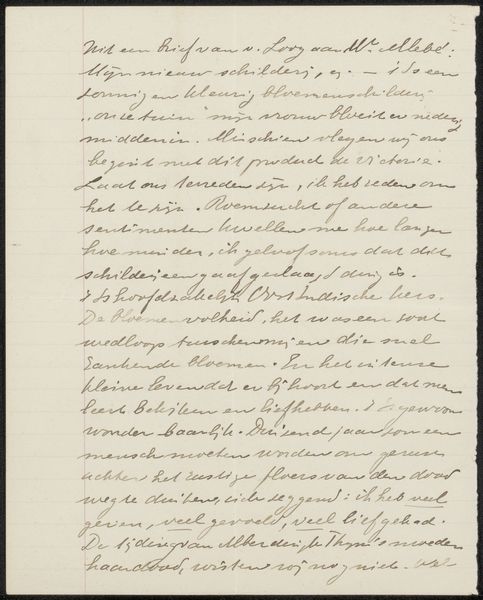 Uit een brief van v. Looy aan Mr. Allebé:
Mijn nieuw schilderij, - 't Is een
zonnig en kleurig bloemenschilderij
"onze tuin" mijn vrouw bloeit er nederig
middenin. Misschien vlagen wij ons
begint met dit product de victorie.
Laat ons tevreden zijn, ik heb reden om
het te zijn. Roemzucht of andere
sentimenten kwellen me hoe langer
hoe minder, ik geloof soms dat dit
schilderij een gaaf geslaagd ding is.
't Is hoofdzakelijk Oost Indische kers.
De bloemen volheid, het was een soort
wedloop tusschen mij en die snel
rankende bloemen. En het intense
kleine leven dat er bij hoort en dat men
leert bekijken en liefhebben. 't Is gewoon
wonderbaarlijk. Duizend jaar zou een
mensch moeten worden om gerust
achter het rustige floers van den dood
weg te duiken, zich zeggend: ik heb veel
geven, veel gevoeld, veel liefgehad.
De tijding van Alberdingk Thym's moeders
haar dood, wisten wij nog niet. Wel